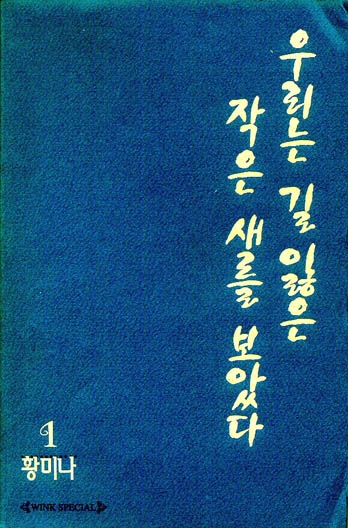 우리는 길 잃은
작은 새를 보았다
1
황미나
WINK SPECIAL